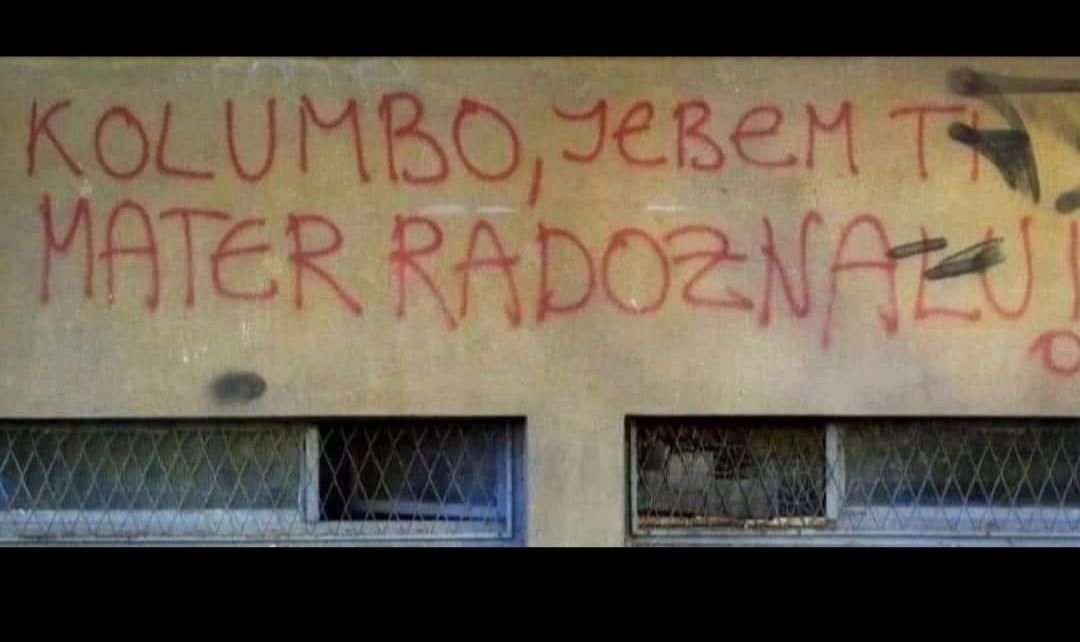 KOLUMBO, JEBEM TI
MATER RADOZNALU!